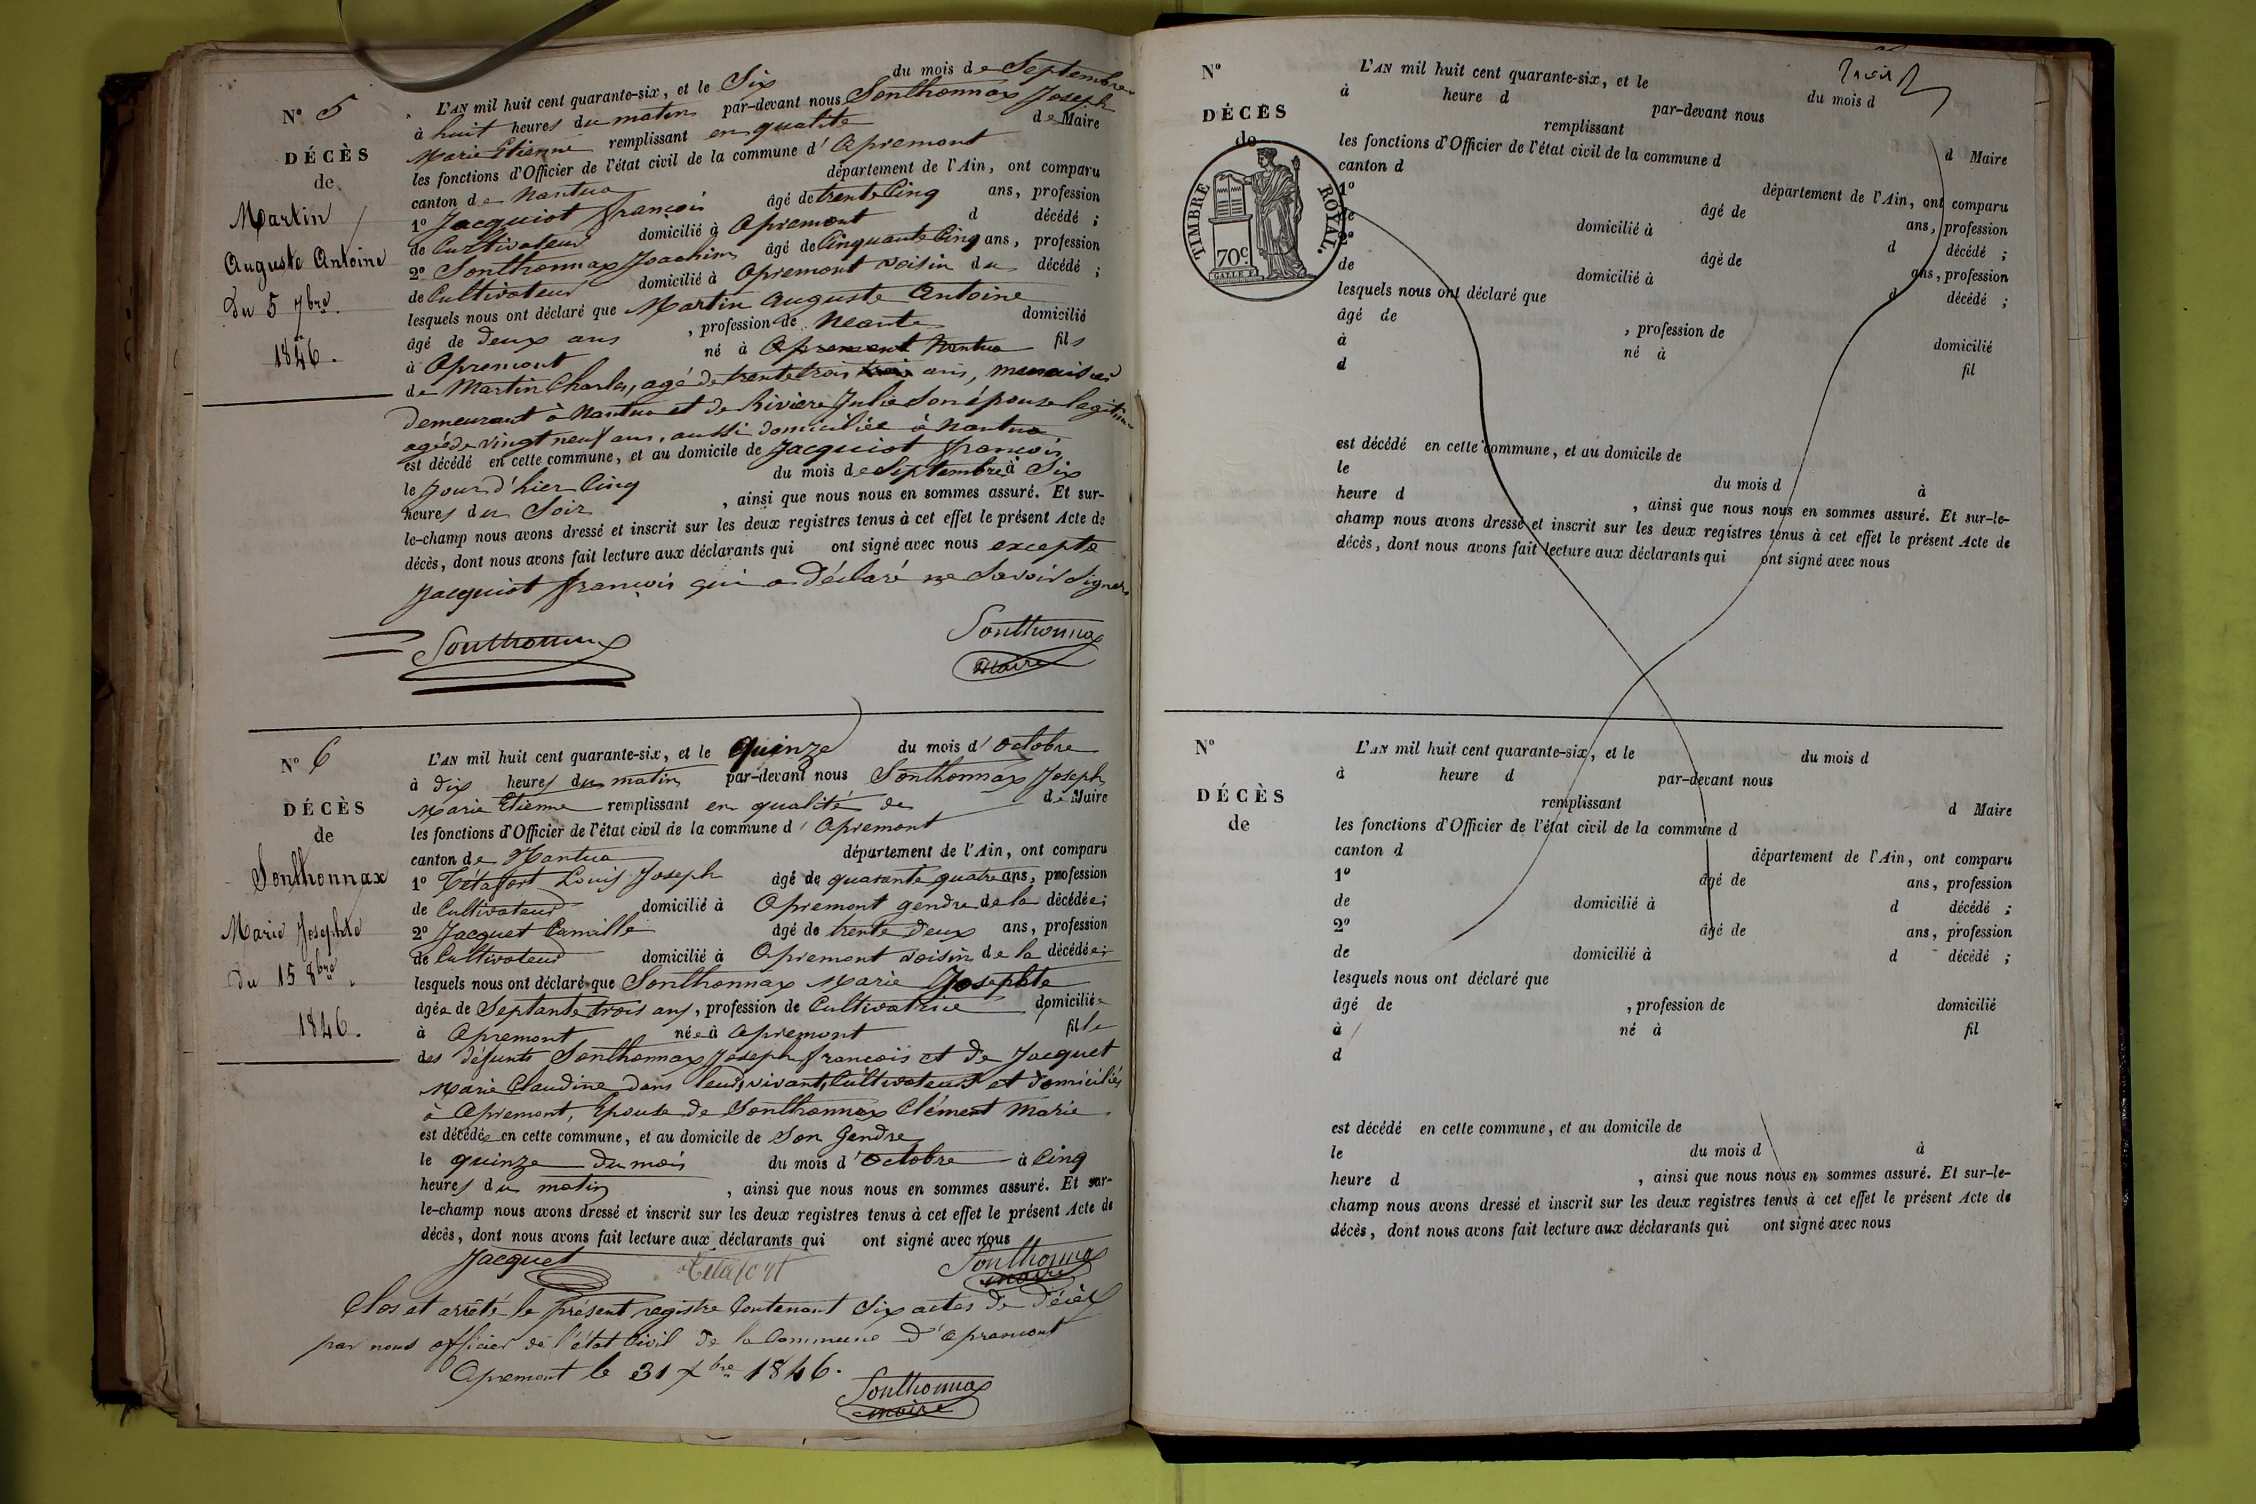 N° 5
DÉCÈS
de
Martin
Auguste Antoine
Du 5 7bre
1846.
L'AN mil huit cent quarante-six, et le Six du mois de Septembre
à huit heures du matin par-devant nous Sonthonnax Joseph
Marie Etienne remplissant en qualité de Maire
les fonctions d'Officier de l'état civil de la commune d'Apremont
canton de Nantua département de l'Ain, ont comparu
1° Jacquiot françois âgé de trente Cinq ans, profession
de Cultivateur domicilié à Apremont d décédé ;
2° Sonthonnax Joachim âgé de Cinquante Cinq ans, profession
de Cultivateur domicilié à Apremont voisin du décédé ;
lesquels nous ont déclaré que Martin Auguste Antoine
âgé de deux ans , profession de Neante domicilié
à Apremont né à Apremont Nantua fils
de Martin Charles, agé de trente trois trois ans, menuisier
demeurant à Nantua et de Rivière Julie Son épouse legitime
agée de vingt neuf ans, aussi domiciliée à Nantua
est décédé en cette commune, et au domicile de Jacquiot françois
le jour d'hier Cinq du mois de Septembre à Six
heures du Soir , ainsi que nous nous en sommes assuré. Et sur-
le-champ nous avons dressé et inscrit sur les deux registres tenus à cet effet le présent Acte de
décès, dont nous avons fait lecture aux déclarants qui ont signé avec nous excepté
Jacquiot françois qui a déclaré ne Savoir Signer
Sonthonnax Sonthonnax
maire
N° 6
DÉCÈS
de
Sonthonnax
Marie Josephte
du 15 8bre
1846.
L'AN mil huit cent quarante-six, et le quinze du mois d'octobre
à dix heures du matin par-devant nous Sonthonnax Joseph
Marie Etienne remplissant en qualité de de Maire
les fonctions d'Officier de l'état civil de la commune d'Apremont
canton de Nantua département de l'Ain, ont comparu
1° Tétafort Louis Joseph âgé de quarante quatre ans, profession
de Cultivateur domicilié à Apremont gendre de la décédée ;
2° Jacquet Camille âgé de trente deux ans, profession
de Cultivateur domicilié à Apremont voisin de la décédée ;
lesquels nous ont déclaré que Sonthonnax Marie Josephte
âgée de Septante trois ans, profession de Cultivatrice domiciliée
à Apremont née à Apremont fille
des défunts Sonthonnax Joseph françois et de Jacquet
Marie Claudine dans leurs vivant, Cultivateurs et domiciliés
à Apremont, Epouse de Sonthonnax Clément Marie
est décédée en cette commune, et au domicile de Son Gendre
le quinze du mois du mois d'octobre à Cinq
heures du matin , ainsi que nous nous en sommes assuré. Et sur-
le-champ nous avons dressé et inscrit sur les deux registres tenus à cet effet le présent Acte de
décès, dont nous avons fait lecture aux déclarants qui ont signé avec nous
Jacquet Tétafort Sonthonnax
maire
Clos et arrêté le présent registre Contenant Six actes de décès
par nous officier de l'état Civil de la Commune d'apremont
Apremont le 31 Xbre 1846.
Sonthonnax
maire
N°
DÉCÈS
de
TIMBRE ROYAL.
70c
GALLE F.
L'AN mil huit cent quarante-six, et le du mois d
à heure d par-devant nous
remplissant d Maire
les fonctions d'Officier de l'état civil de la commune d
canton d département de l'Ain, ont comparu
1° âgé de ans, profession
de domicilié à d décédé ;
2° âgé de ans, profession
de domicilié à d décédé ;
lesquels nous ont déclaré que
âgé de , profession de domicilié
à né à fil
d
est décédé en cette commune, et au domicile de
le du mois d à
heure d , ainsi que nous nous en sommes assuré. Et sur-le-
champ nous avons dressé et inscrit sur les deux registres tenus à cet effet le présent Acte de
décès, dont nous avons fait lecture aux déclarants qui ont signé avec nous
N°
DÉCÈS
de
L'AN mil huit cent quarante-six, et le du mois d
à heure d par-devant nous
remplissant d Maire
les fonctions d'Officier de l'état civil de la commune d
canton d département de l'Ain, ont comparu
1° âgé de ans, profession
de domicilié à d décédé ;
2° âgé de ans, profession
de domicilié à d décédé ;
lesquels nous ont déclaré que
âgé de , profession de domicilié
à né à fil
d
est décédé en cette commune, et au domicile de
le du mois d à
heure d , ainsi que nous nous en sommes assuré. Et sur-le-
champ nous avons dressé et inscrit sur les deux registres tenus à cet effet le présent Acte de
décès, dont nous avons fait lecture aux déclarants qui ont signé avec nous